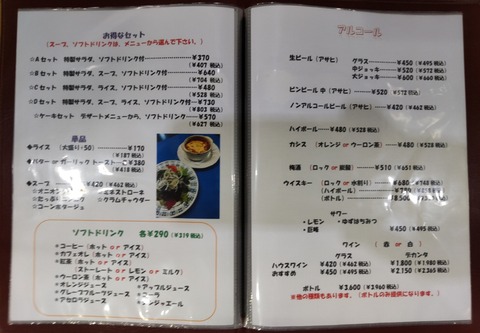 お得なセット
(スープ、ソフトドリンクは、メニューから選んで下さい。)
☆Aセット 特製サラダ、ソフトドリンク付 ¥370
(¥407 税込)
☆Bセット 特製サラダ、スープ、ソフトドリンク付 ¥640
(¥704 税込)
☆Cセット 特製サラダ、ライス、ソフトドリンク付 ¥480
(¥528 税込)
☆Dセット 特製サラダ、スープ、ライス、ソフトドリンク付 ¥730
(¥803 税込)
☆ケーキセット デザートメニューから、ソフトドリンク付 ¥570
(¥627 税込)
単品
◆ライス (大盛り+50) ¥170
(¥187 税込)
◆バター or ガーリック トースト ¥380
(¥418 税込)
◆スープ ¥420 (¥462 税込)
☆ミネストローネ
☆クラムチャウダー
☆コーンポタージュ
ソフトドリンク 各¥290 (¥319 税込)
☆コーヒー (ホット or アイス)
☆カフェオレ (ホット or アイス)
☆紅茶 (ホット or アイス)
(ストーレート or レモン or ミルク)
☆ウーロン茶 (ホット or アイス)
☆オレンジジュース ☆アップルジュース
☆グレープフルーツジュース ☆コーラ
☆アセロラジュース ☆ジンジャエール
アルコール
生ビール (アサヒ) グラス ¥450 (¥495 税込)
中ジョッキ ¥520 (¥572 税込)
大ジョッキ
ビンビール 中 (アサヒ) ¥520 (¥572 税込)
ノンアルコールビール (アサヒ) ¥420 (¥462 税込)
ハイボール ¥480 (¥528 税込)
カシス (オレンジ or ウーロン茶) ¥480 (¥528 税込)
梅酒 (ロック or 炭酸) ¥510 (¥561 税込)
ウイスキー (ロック or 水割り) ¥680 (¥748 税込)
(ハイボール)
(ボトル)
サワー
・レモン ・ゆずはちみつ
・巨峰 ¥450 (¥495 税込)
ワイン (赤 or 白)
グラス デカンタ
ハウスワイン ¥420 (¥462 税込) ¥1,800 (¥1,980 税込)
おすすめ ¥450 (¥495 税込) ¥2,150 (¥2,365 税込)
ボトル ¥3,600 (¥3,960 税込)
※他の種類もあります。(ボトルのみ提供になります。)